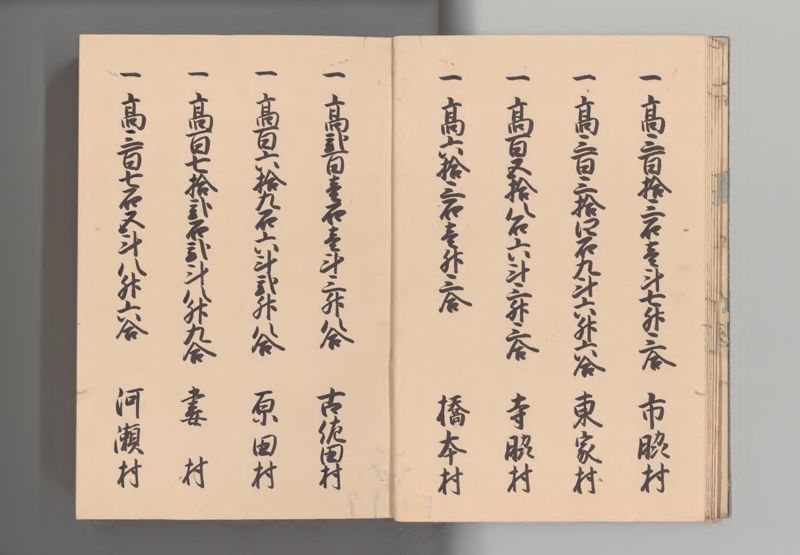 一 高三百拾三石壱斗七升三合 市脇村
一 高三百三拾四石九斗六升六合 東家村
一 高百五拾八石六斗三升三合 寺脇村
一 高六拾三石壱升三合 橋本村
一 高弐百壱石壱斗三升八合 古佐田村
一 高百六拾九石六斗弐升八合 原田村
一 高百七拾弐石弐斗八升九合 妻村
一 高三百七石五斗八升六合 河瀬村